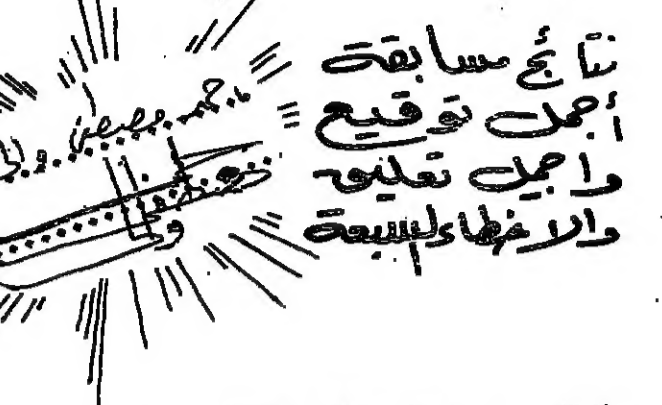 نتائج مسابقة
أجمل توقيع
واجمل تعليق
والاخطاء السبعة